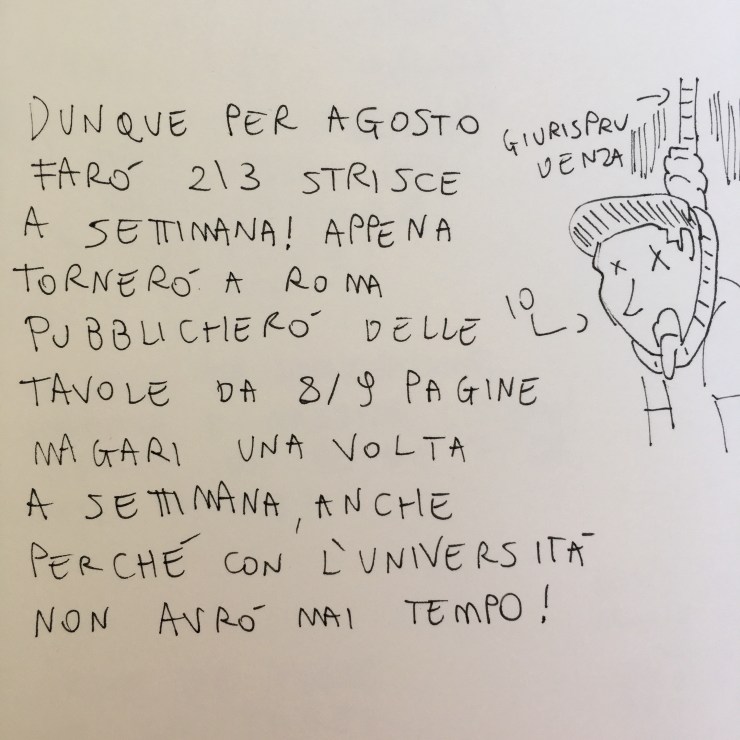 DUNQUE PER AGOSTO
FARÓ 2\3 STRISCE
A SETTIMANA! APPENA
TORNERÓ A ROMA
PUBBLICHERÓ DELLE
TAVOLE DA 8/9 PAGINE
MAGARI UNA VOLTA
A SETTIMANA, ANCHE
PERCHÉ CON L'UNIVERSITÁ
NON AVRÓ MAI TEMPO!
GIURISPRU
DENZA
IO